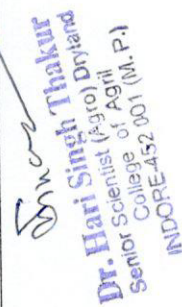 Dr. Hari Singh Thakur
Senior Scientist (Agro) Dryland
College of Agril
INDORE-452 001 (M.P.)